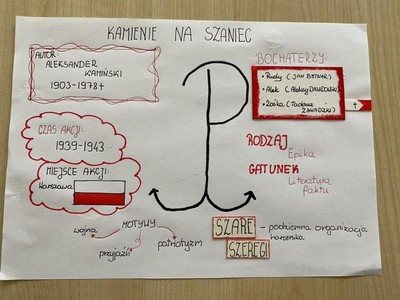 KAMIENIE NA SZANIEC
AUTOR:
ALEKSANDER
KAMIŃSKI
1903-1978†
BOCHATERZY:
• Rudy (JAN BYTNAR)
• Alek (Aleksy DAWIDOWSKI)
• Zośka (Tadeusz
ZAWADZKI)
†
CZAS AKCJI:
1939-1943
MIEJSCE AKCJI:
Warszawa
RODZAJ
Epika
GATUNEK
Literatura
faktu
MOTYWY
wojna
przyjaźń
patriotyzm
SZARE
SZEREGI
- podziemna organizacja
harcerska.